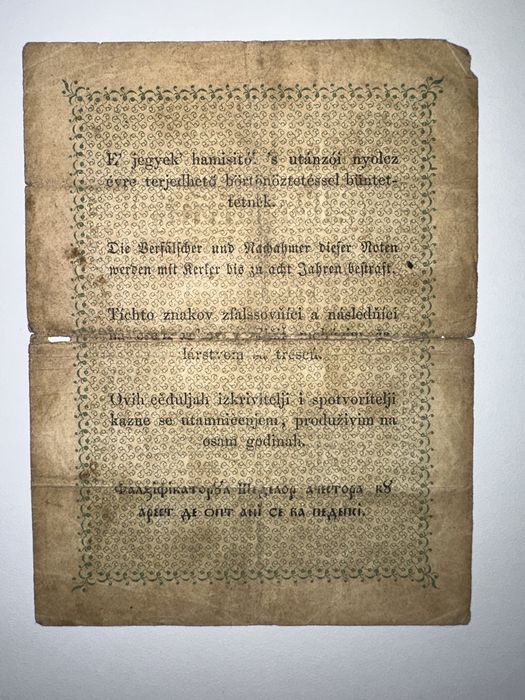 E' jegyek' hamisitói 's utánzói nyolcz
évre terjedhető börtönöztetéssel büntet-
tetnek.
Die Verfälscher und Nachahmer dieser Noten
werden mit Kerker bis zu acht Jahren bestraft.
Tíchto znakov zfalssovňíci a následňíci
na osem
lárstvom trescú.
Ovih cèduljah izkrivitelji i spotvoritelji
kazne se utamničenjem, produživim na
osam godinah.
Фалзіфікаторꙋл
арест де опт анi се ва педепсi.